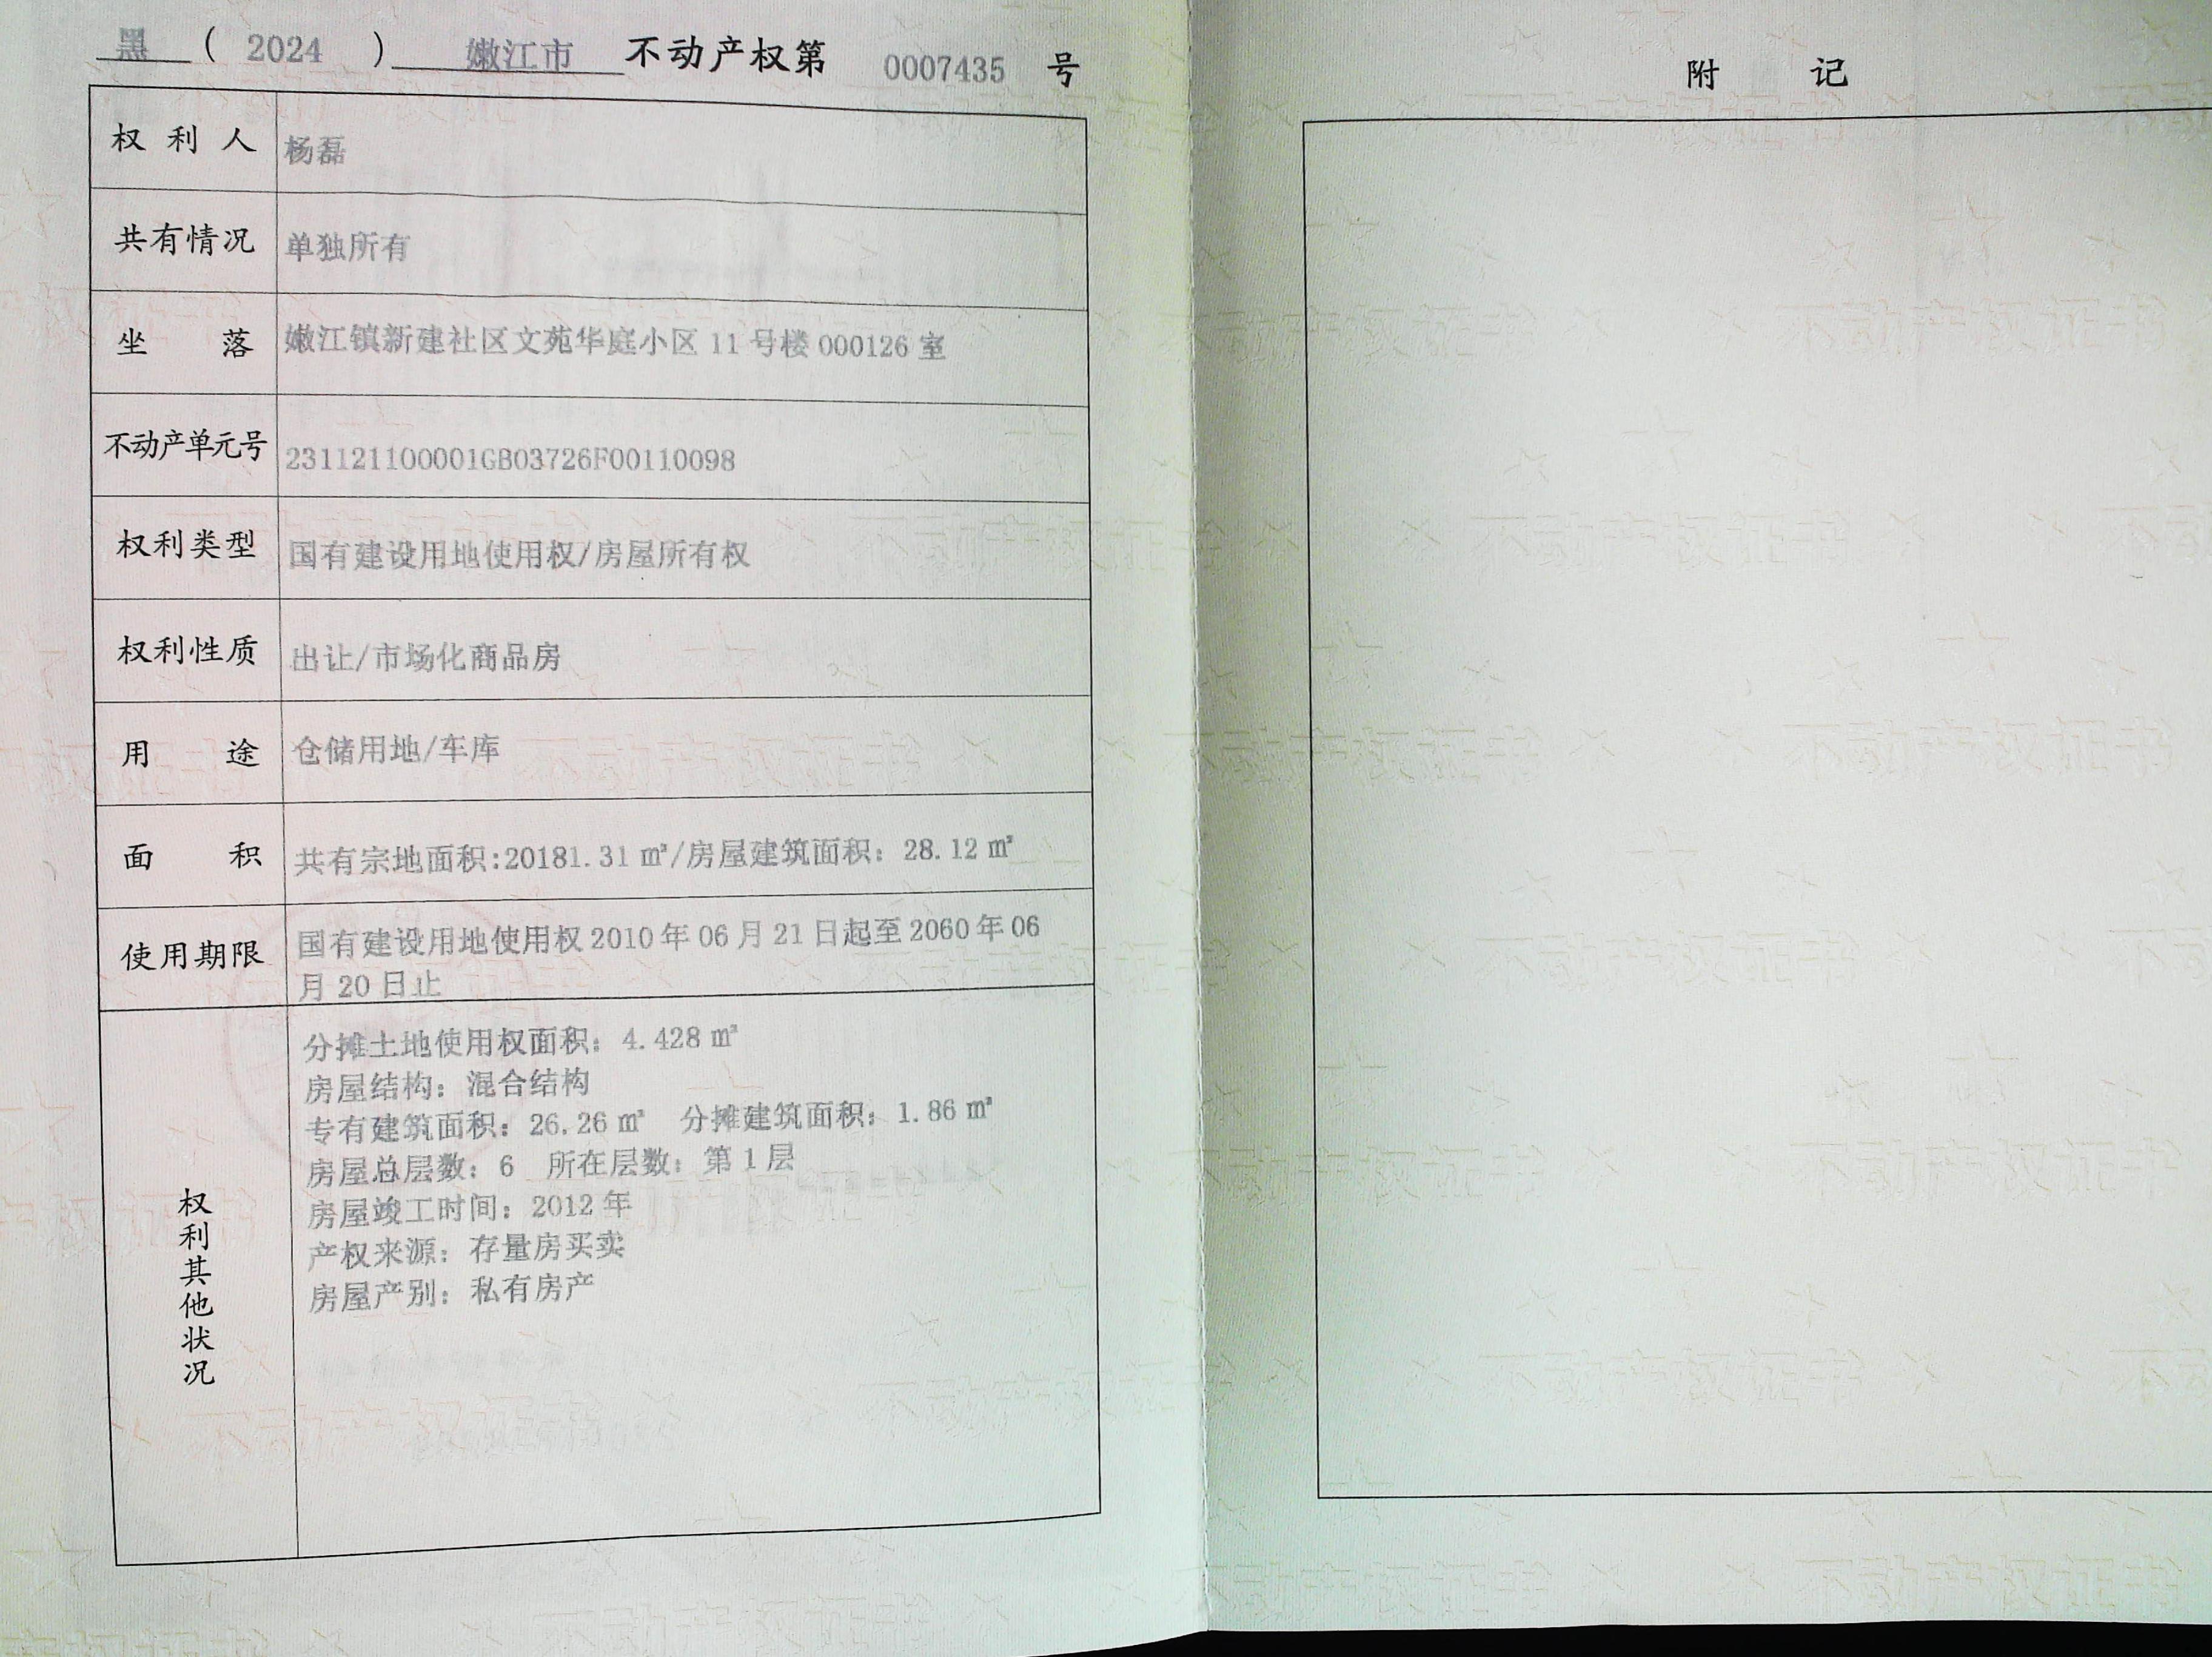 黑 ( 2024 ) 嫩江市 不动产权第 0007435 号
权利人 杨磊
共有情况 单独所有
坐落 嫩江镇新建社区文苑华庭小区 11 号楼 000126 室
不动产单元号 231121100001GB03726F00110098
权利类型 国有建设用地使用权/房屋所有权
权利性质 出让/市场化商品房
用途 仓储用地/车库
面积 共有宗地面积:20181.31 ㎡/房屋建筑面积：28.12 ㎡
使用期限 国有建设用地使用权 2010 年 06 月 21 日起至 2060 年 06
月 20 日止
权利其他状况
分摊土地使用权面积：4.428 ㎡
房屋结构：混合结构
专有建筑面积：26.26 ㎡ 分摊建筑面积：1.86 ㎡
房屋总层数：6 所在层数：第 1 层
房屋竣工时间：2012 年
产权来源：存量房买卖
房屋产别：私有房产
附记